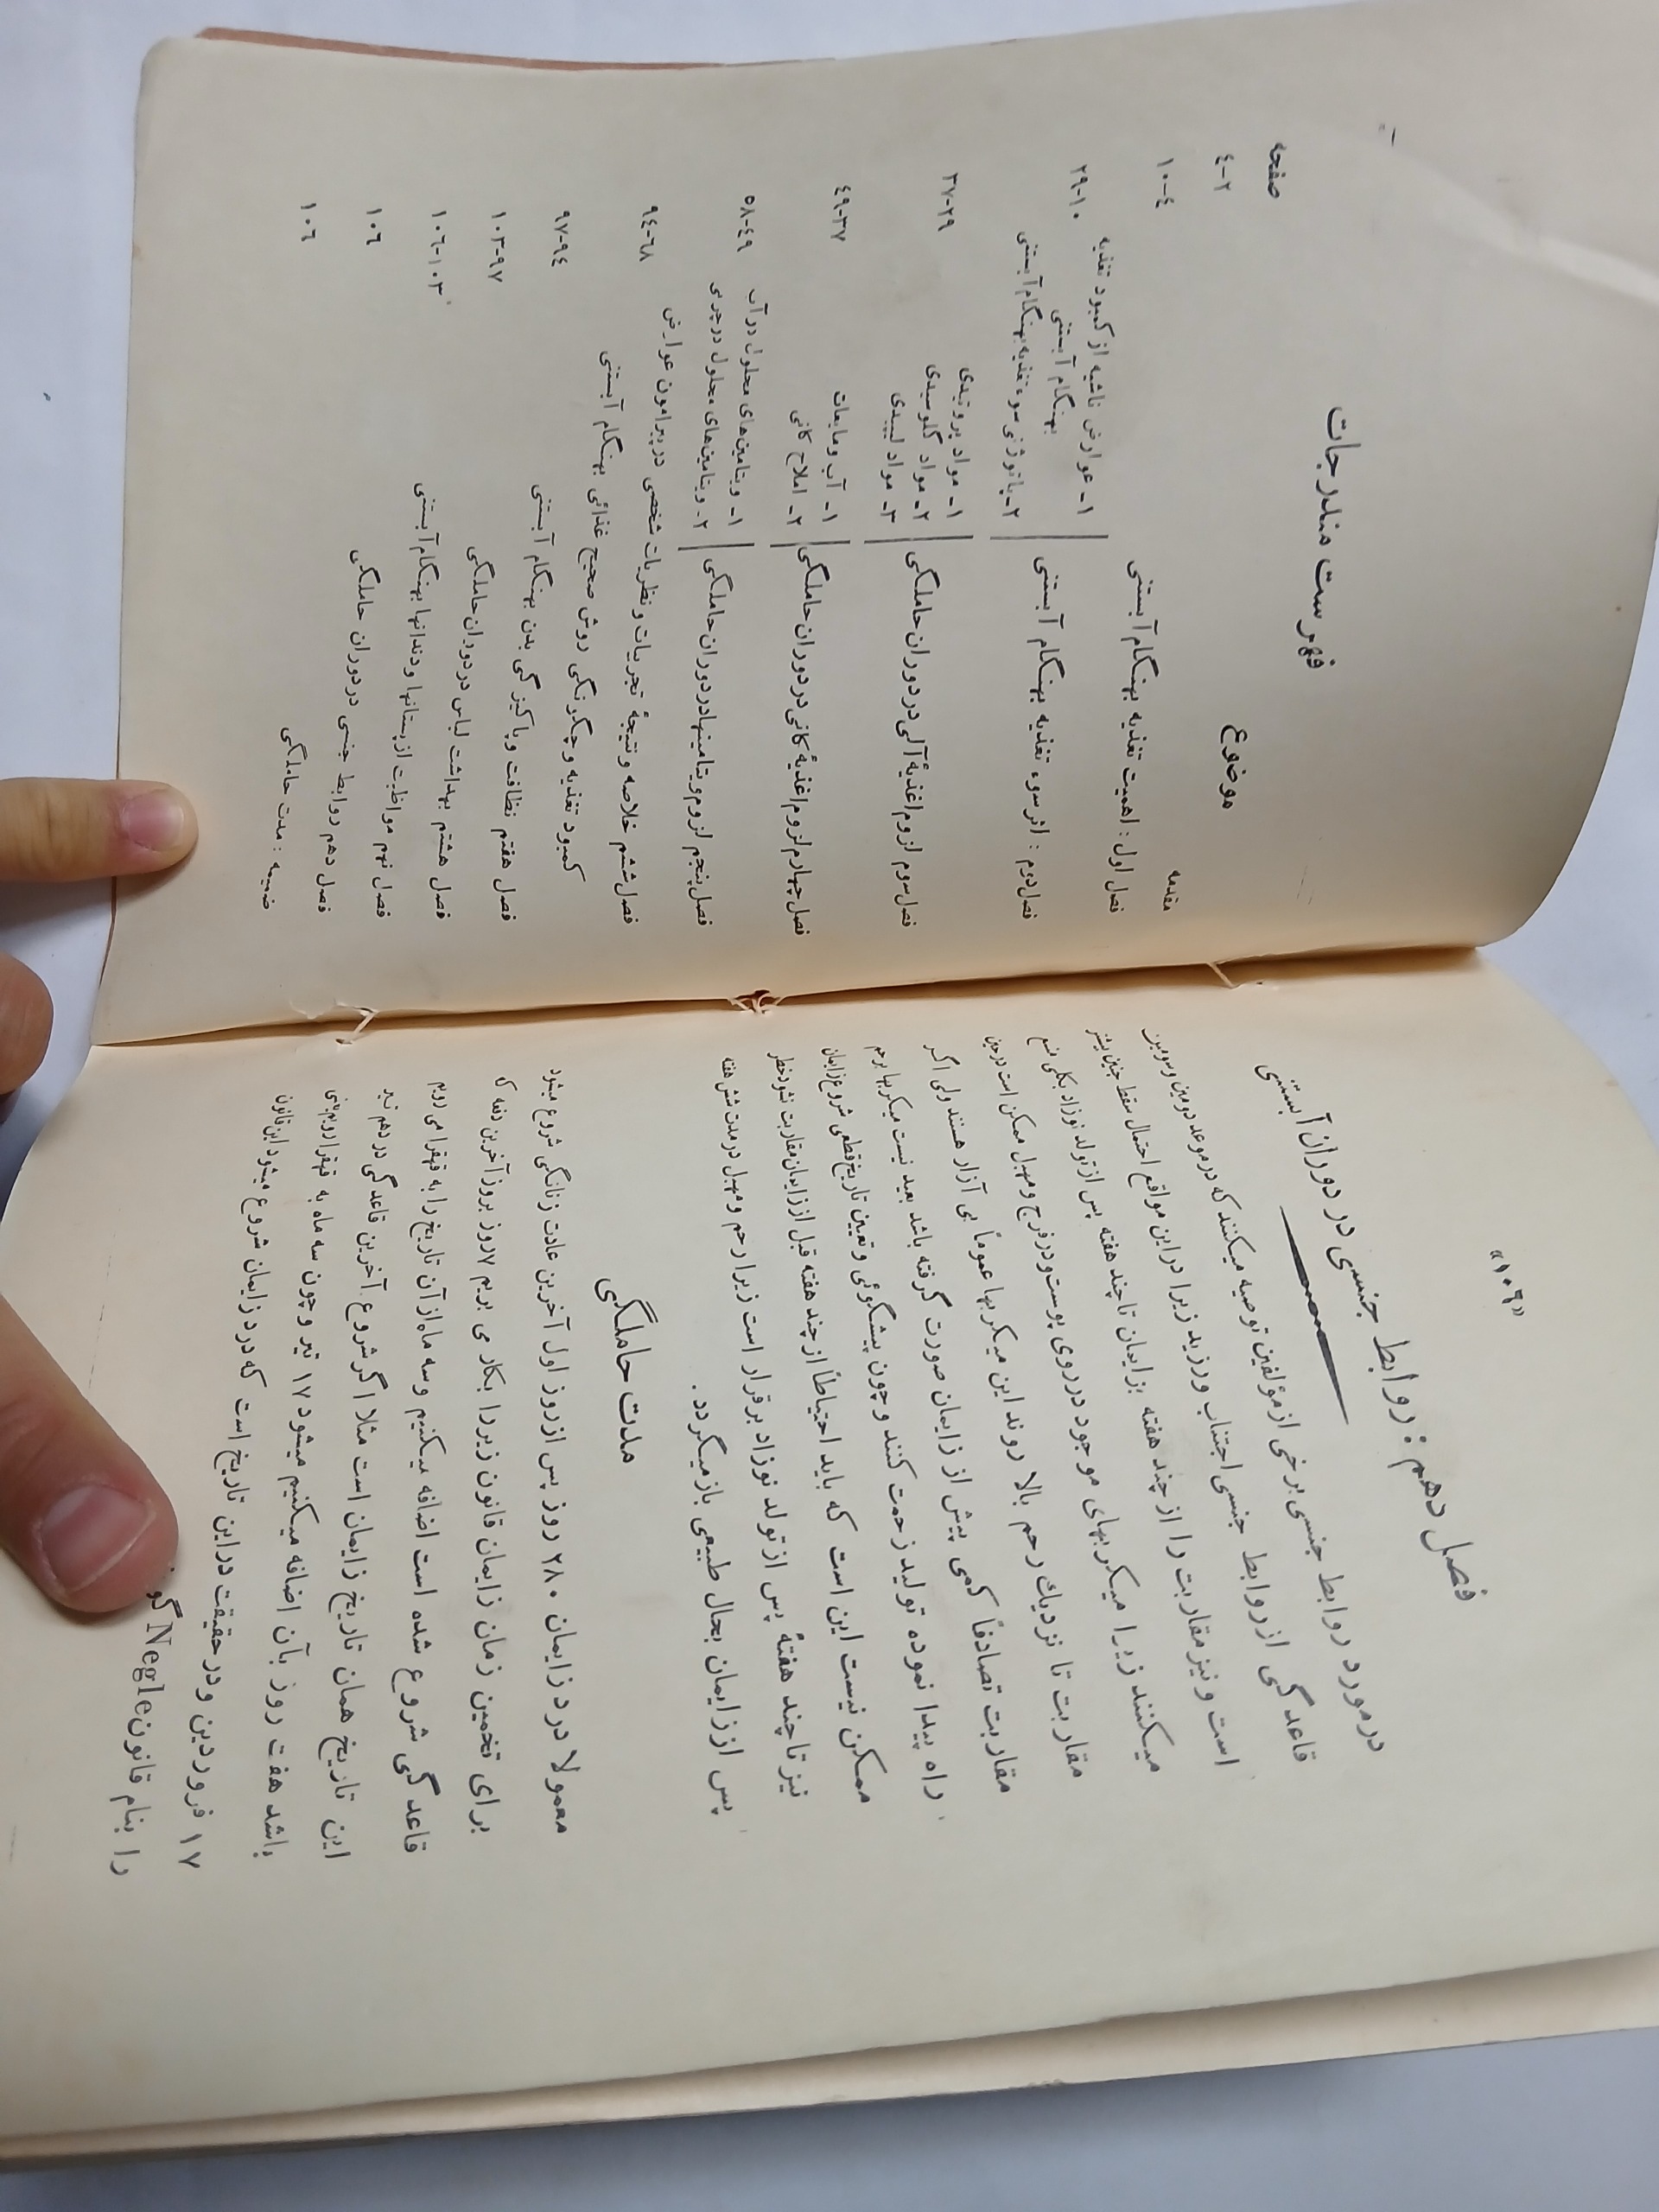 «۱۰۶»
فصل دهم : روابط جنسی در دوران آبستنی
در مورد روابط جنسی برخی از مؤلفین توصیه میکنند که در موعد دومین و سومین
قاعدگی از روابط جنسی اجتناب ورزید زیرا در این مواقع احتمال سقط جنین بیشتر
است و نیز مقاربت را از چند هفته بزایمان تا چند هفته پس از تولد نوزاد بکلی منع
میکنند زیرا میکربهای موجود در روی پوست و در فرج و مهبل ممکن است در حین
مقاربت تا نزدیك رحم بالا روند این میکربها عموماً بی آزار هستند ولی اگر
مقاربت تصادفاً کمی پیش از زایمان صورت گرفته باشد بعید نیست میکربها برحم
راه پیدا نموده تولید زحمت کنند و چون پیشگوئی و تعیین تاریخ قطعی شروع زایمان
ممکن نیست این است که باید احتیاطاً از چند هفته قبل از زایمان مقاربت نشود خطر
نیز تا چند هفتهٔ پس از تولد نوزاد برقرار است زیرا رحم و مهبل در مدت شش هفته
پس از زایمان بحال طبیعی باز میگردد .
مدت حاملگی
معمولا درد زایمان ۲۸۰ روز پس از روز اول آخرین عادت زنانگی شروع میشود
برای تخمین زمان زایمان قانون زیر را بکار می بریم ۷ روز بروز آخرین دفعه که
قاعدگی شروع شده است اضافه میکنیم و سه ماه از آن تاریخ را به قهقرا می رویم
این تاریخ همان تاریخ زایمان است مثلا اگر شروع آخرین قاعدگی در دهم تیر
باشد هفت روز بآن اضافه میکنیم میشود ۱۷ تیر و چون سه ماه به قهقرا رویم یعنی
۱۷ فروردین و در حقیقت در این تاریخ است که درد زایمان شروع میشود این قانون
را بنام قانون Negle
فهرست مندرجات
موضوع صفحه
مقدمه ۲-٤
فصل اول : اهمیت تغذیه بهنگام آبستنی ٤-۱۰
فصل دوم : اثر سوء تغذیه بهنگام آبستنی ۱- عوارض ناشیه از کمبود تغذیه بهنگام آبستنی ۱۰-۲۹
۲- پاتوژنی سوء تغذیه بهنگام آبستنی
فصل سوم لزوم اغذیهٔ آلی در دوران حاملگی ۱- مواد پروتیدی ۲۹-۳۷
۲- مواد گلوسیدی
۳- مواد لیپیدی
فصل چهارم لزوم اغذیهٔ کانی در دوران حاملگی ۱- آب و مایعات ۳۷-٤۹
۲- املاح کانی
فصل پنجم لزوم ویتامینها در دوران حاملگی ۱- ویتامین‌های محلول در آب ٤۹-۵۸
۲- ویتامین‌های محلول در چربی
فصل ششم خلاصه و نتیجهٔ تجربیات و نظریات شخصی در پیرامون عوارض
کمبود تغذیه و چگونگی روش صحیح غذائی بهنگام آبستنی ۶۸-۹٤
فصل هفتم نظافت و پاکیزگی بدن بهنگام آبستنی ۹٤-۹۷
فصل هشتم بهداشت لباس در دوران حاملگی ۹۷-۱۰۳
فصل نهم مواظبت از پستانها و دندانها بهنگام آبستنی ۱۰۳-۱۰۶
فصل دهم روابط جنسی در دوران حاملگی ۱۰۶
ضمیمه : مدت حاملگی ۱۰۶